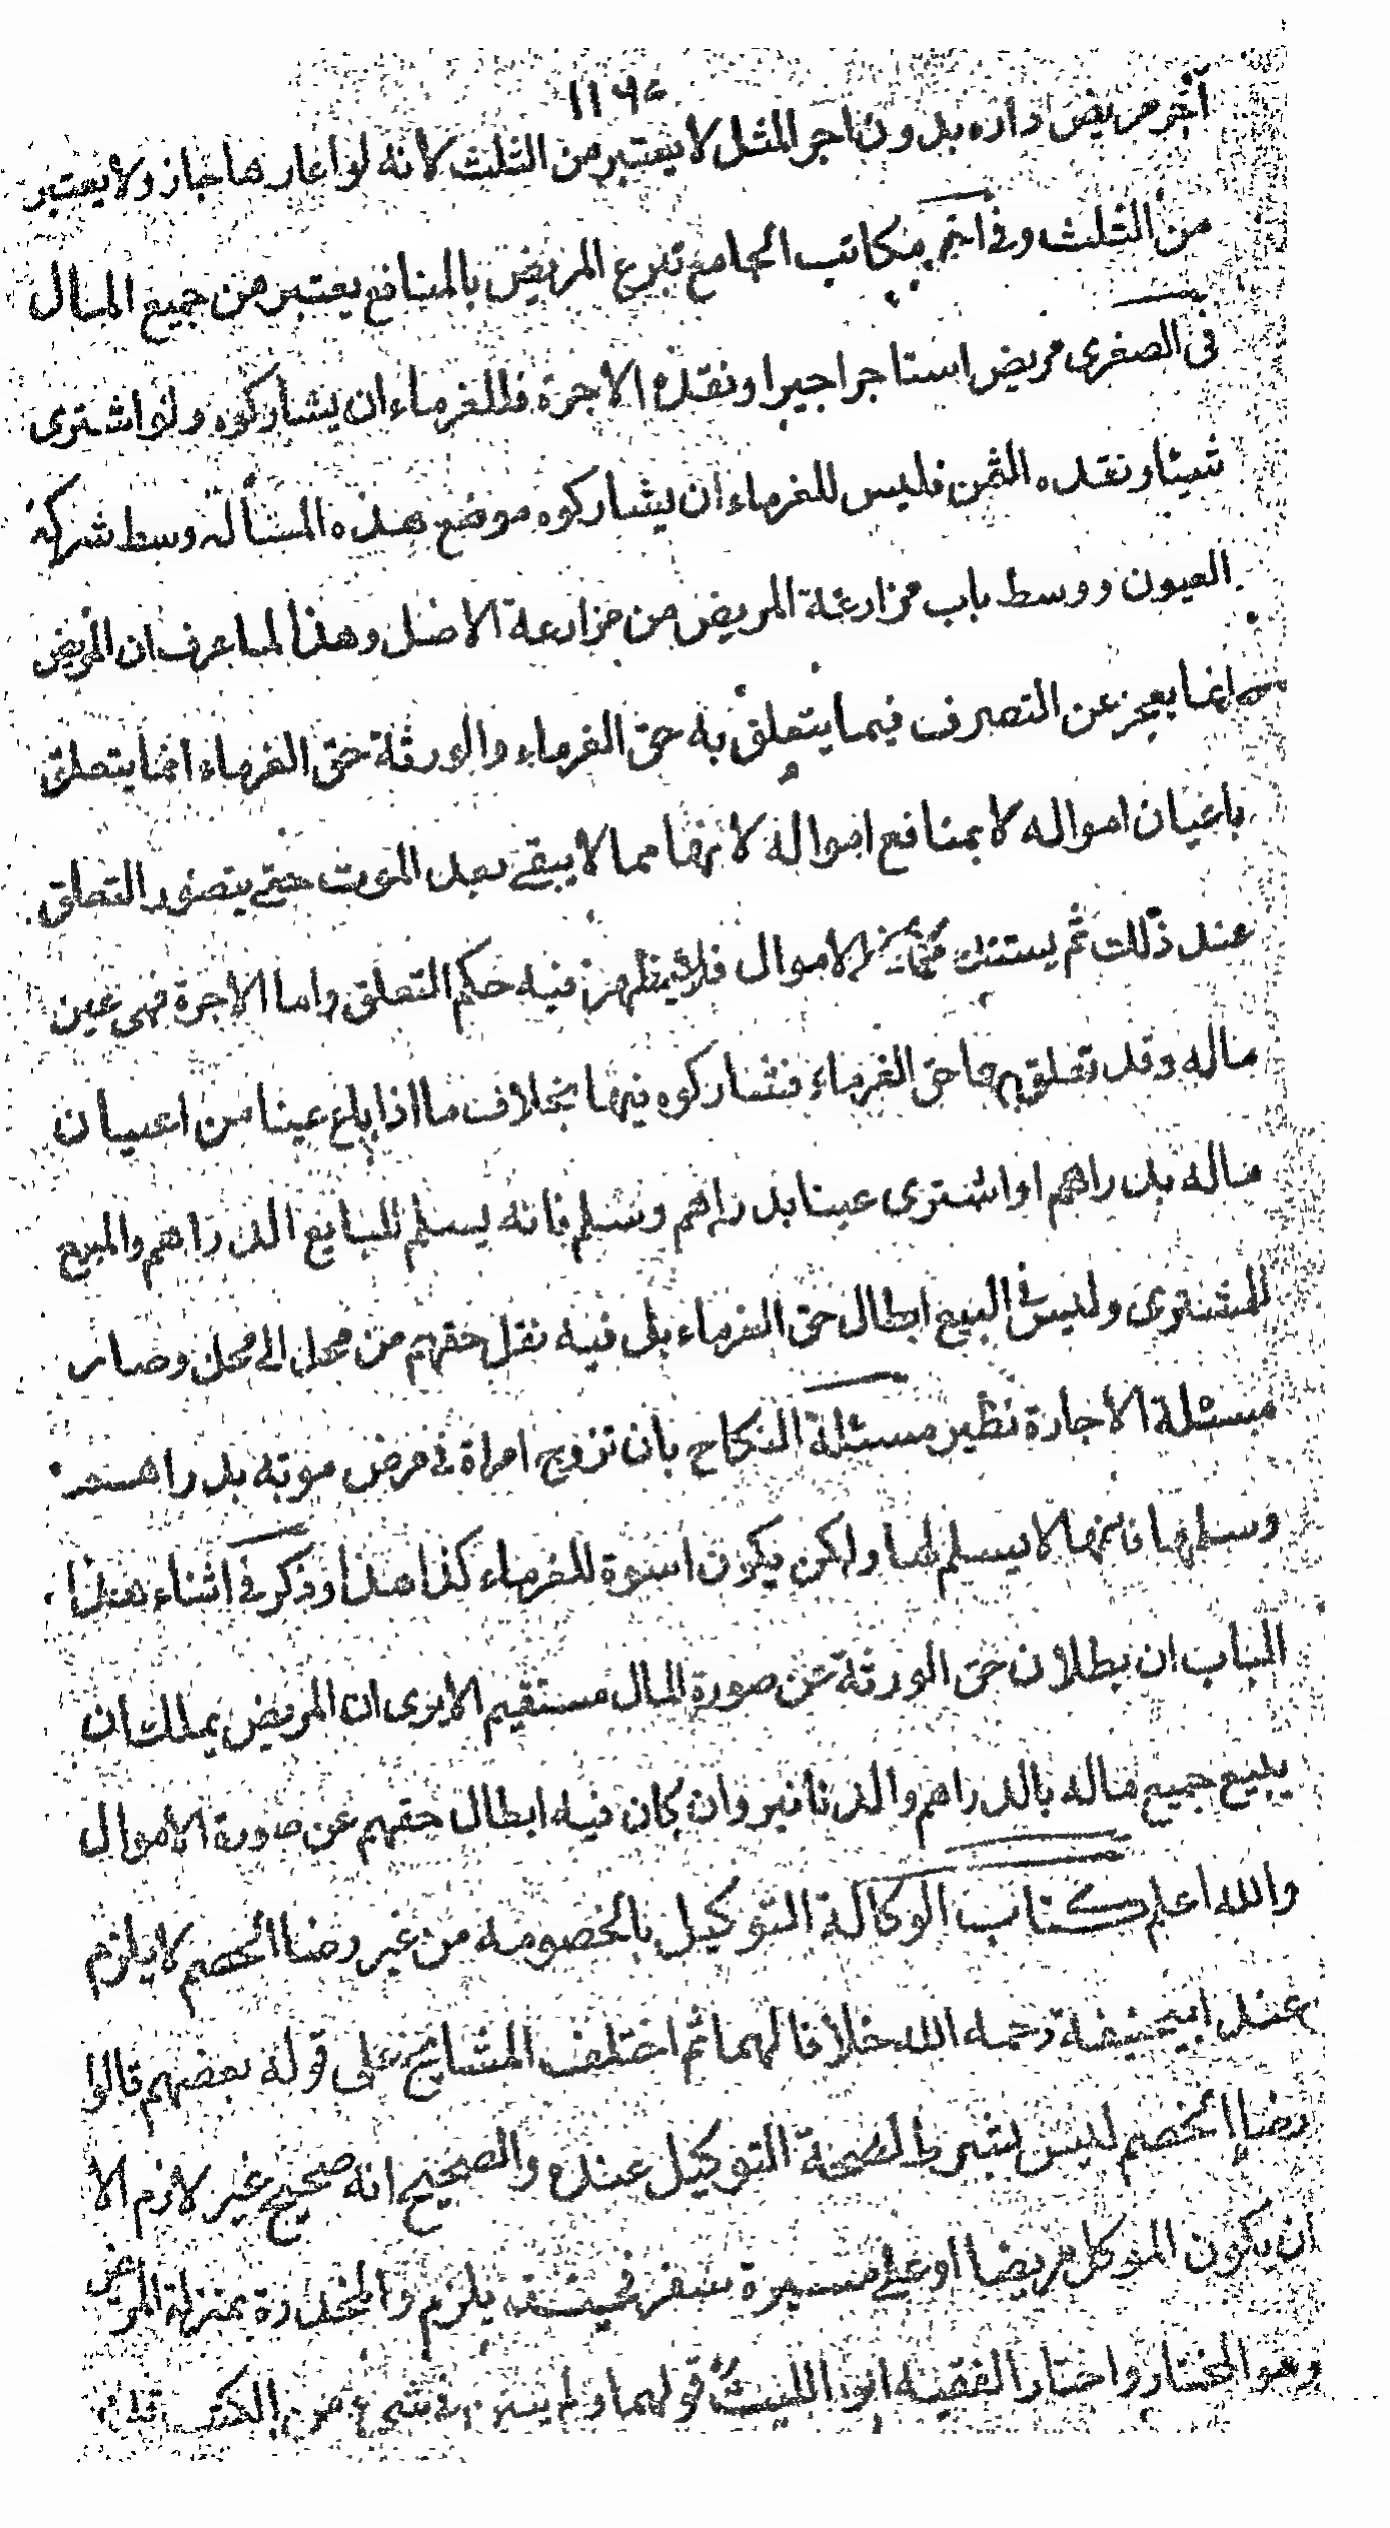 ١١٩٤
آجر مريض داره بدون اجر المثل لا يعتبر من الثلث لانه لو اعارها جاز ولا يعتبر
من الثلث وفي مكاتب الجامع تبرع المريض بالمنافع يعتبر من جميع المال
في الصغرى مريض استاجر اجيرا ونقده الاجرة فللغرماء ان يشاركوه ولو اشترى
شيئا ونقده الثمن فليس للغرماء ان يشاركوه موضع هذه المسألة وسط شركة
العيون ووسط باب مزارعة المريض من مزارعة الاصل وهذا لما عرف ان المريض
انما يعجز عن التصرف فيما يتعلق به حق الغرماء والورثة حق الغرماء انما يتعلق
باعيان امواله لا بمنافع امواله لانها مما لا يبقى بعد الموت حتى يتصور التعلق
عند ذلك ثم يستند الاموال فلا يظهر فيه حكم التعلق واما الاجرة فهي عين
ماله وقد تعلق بها حق الغرماء فشاركوه فيها بخلاف ما اذا باع عينا من اعيان
ماله بدراهم او اشترى عينا بدراهم وسلم فانه يسلم للبايع الدراهم والمبيع
للمشترى وليس في البيع ابطال حق الغرماء بل فيه نقل حقهم من محل الى محل وصار
مسئلة الاجارة نظير مسئلة النكاح بان تزوج امراة في مرض موته بدراهم
وسلمها فانها لا يسلم لها ولكن يكون اسوة للغرماء كذا هذا وذكر في اثناء هذا
الباب ان بطلان حق الورثة عن صورة المال مستقيم الا يرى ان المريض يملك ان
يبيع جميع ماله بالدراهم والدنانير وان كان فيه ابطال حقهم عن صورة الاموال
والله اعلم كتاب الوكالة التوكيل بالخصومة من غير رضا الخصم لا يلزم
عند ابيحنيفة رحمه الله خلافا لهما ثم اختلف المشايخ على قوله بعضهم قالوا
رضا الخصم ليس بشرط لصحة التوكيل عنده والصحيح انه صحيح غير لازم الا
ان يكون الموكل مريضا او على مسيرة سفر فحينئذ يلزم والمخدرة بمنزلة المريض
وهو المختار واختار الفقيه ابو الليث قولهما ولم في شيء من الكتب